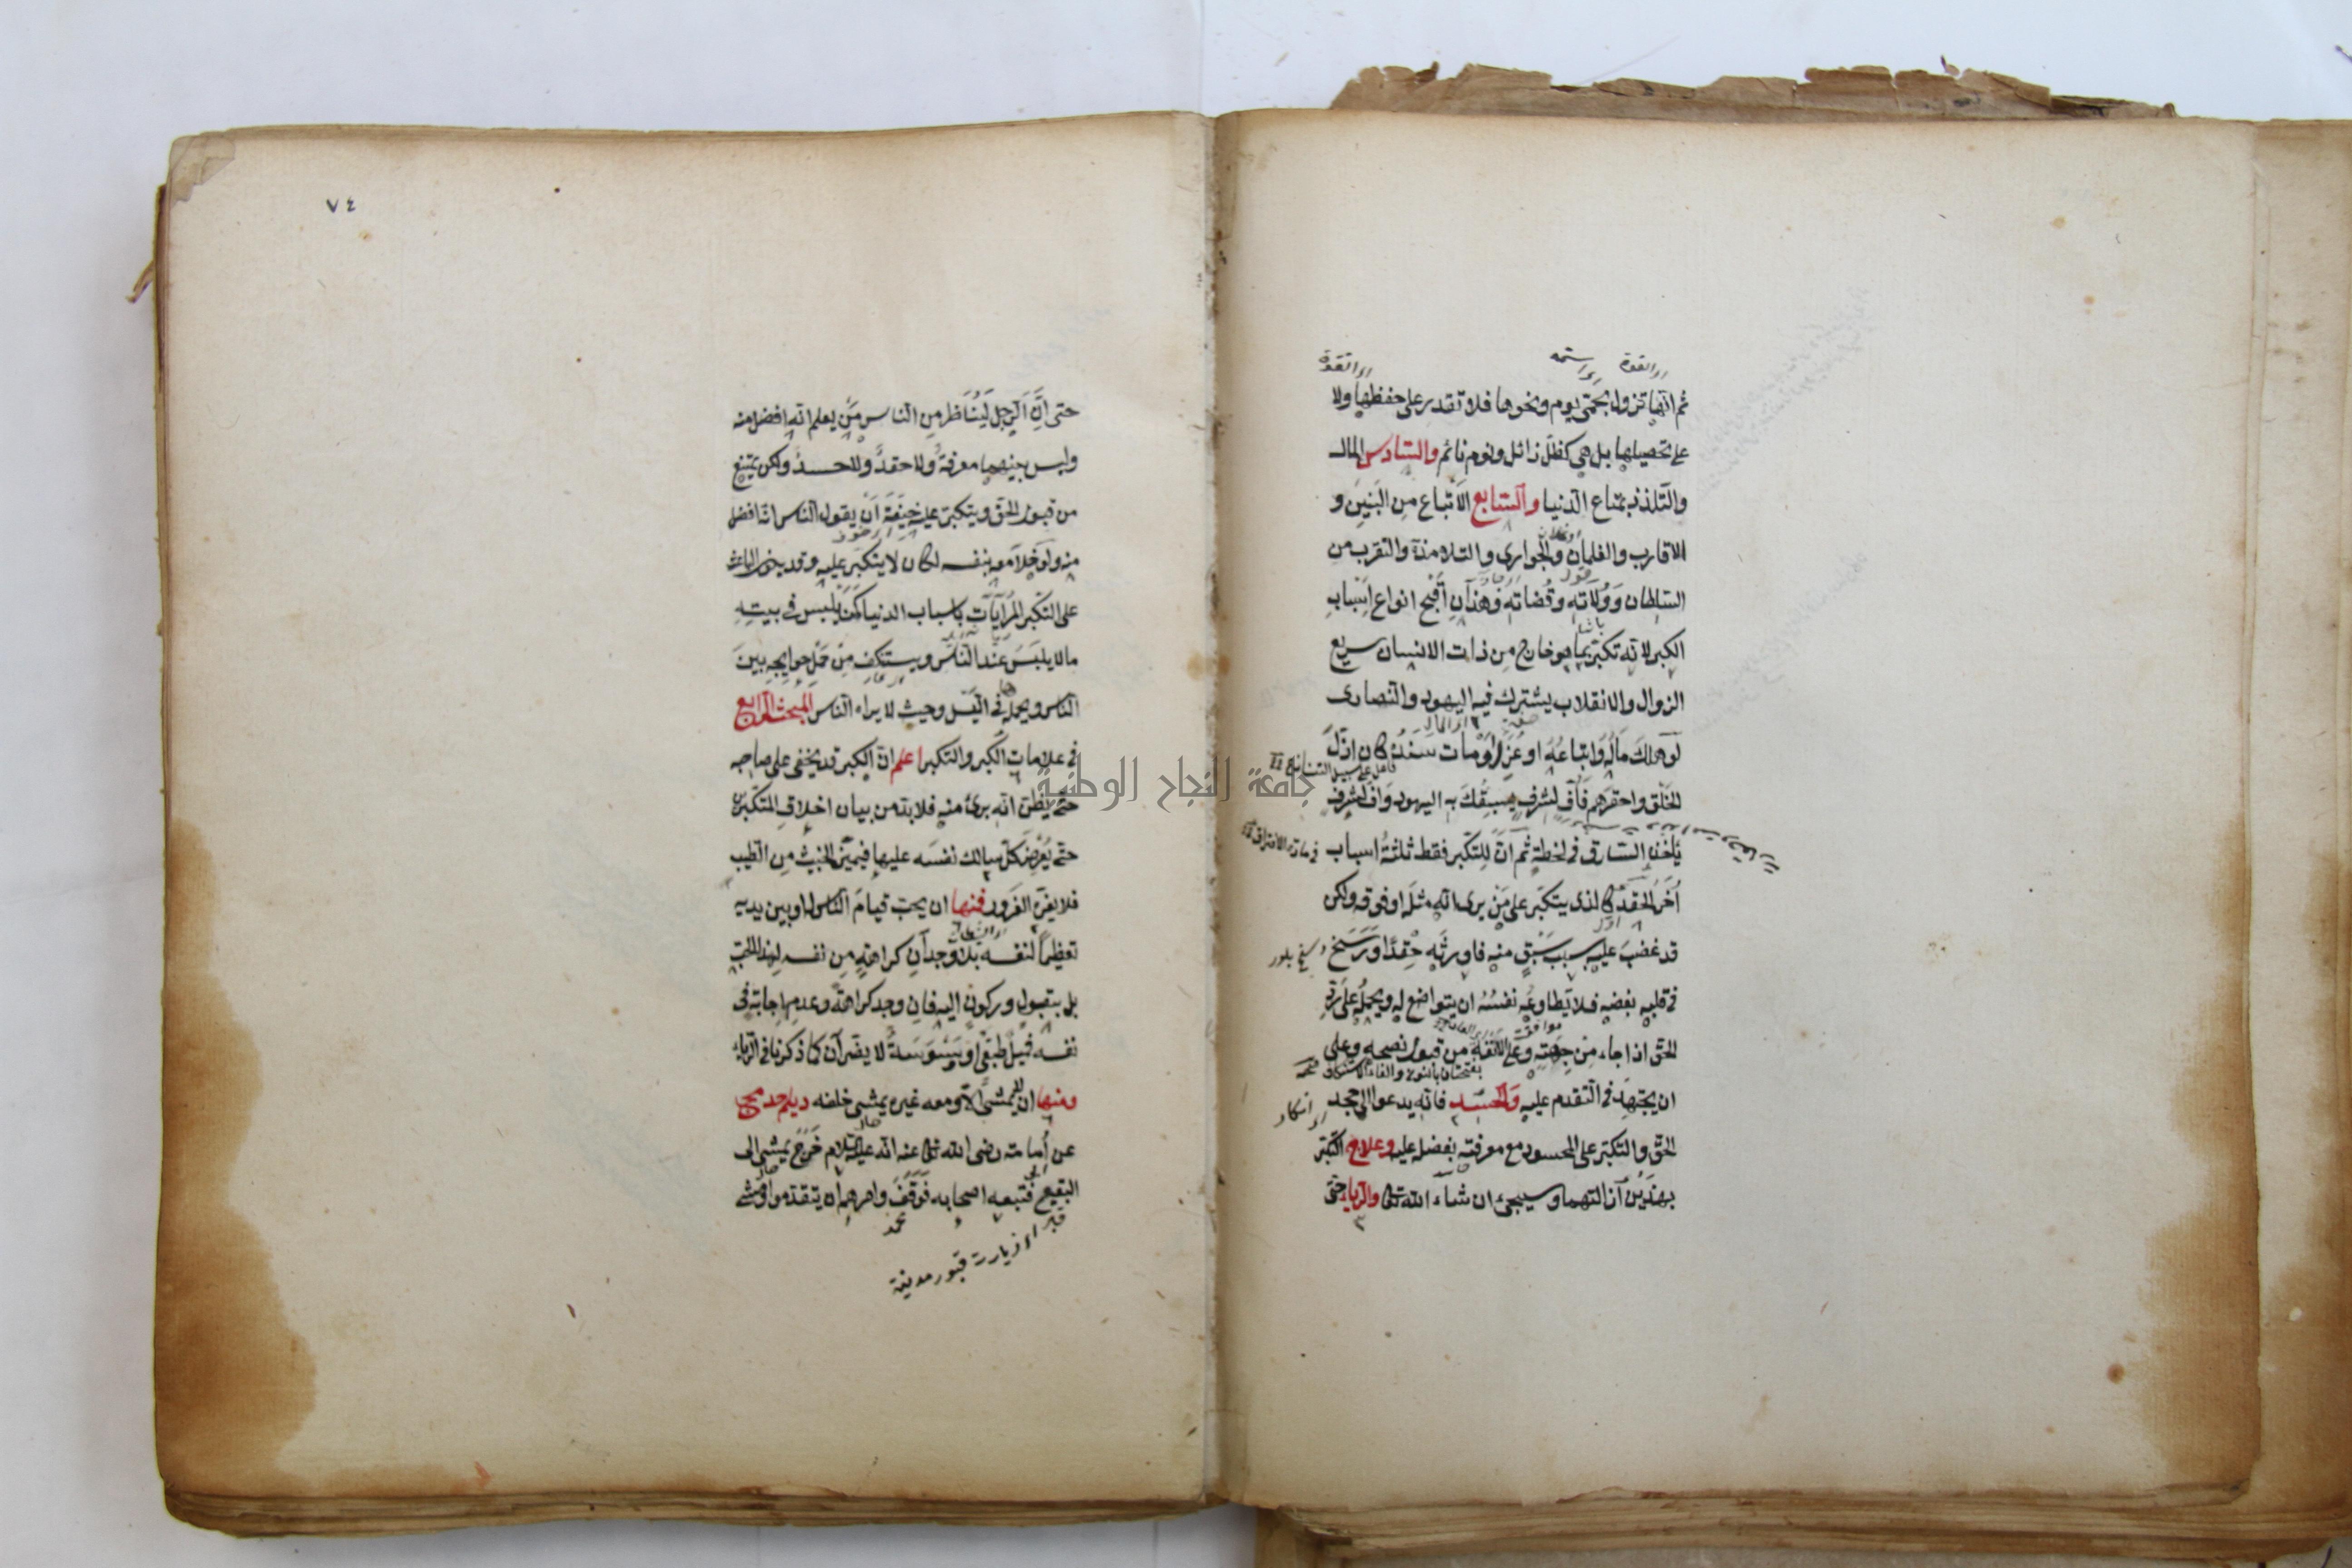 ثم انها تزول بحمى يوم ونحوها فلا تقدر على حفظها ولا
على تحصيلها بل هى كظل زائل ونوم نائم والسادس المال
والتلذذ بمتاع الدنيا والسابع الاتباع من البنين و
الاقارب والغلمان والجوارى والتلامذة والتقرب من
السلطان وولاته وقضاته وهذان اقبح انواع اسباب
الكبر لانه تكبر بما هو خارج من ذات الانسان سريع
الزوال والانقلاب يشترك فيه اليهود والنصارى
لو هلك ماله واتباعه او عزل او مات سنده كان اذل
الخلق واحقرهم فاف لشرف يسبقك به اليهود واف لشرف
يأخذه السارق فى لحظة ثم ان للتكبر فقط ثلثة اسباب
اخر الحقد كالذى يتكبر على من يرى انه مثله او فوقه ولكن
قد غضب عليه بسبب سبق منه فاورثه حقدا ورسخ
فى قلبه بغضه فلا تطاوعه نفسه ان يتواضع له ويحمله على رد
الحق اذا جاء من جهته وعلى الانفة من قبول نصحه وعلى
ان يجتهد فى التقدم عليه والحسد فانه يدعو الى جحد
الحق والتكبر على المحسود مع معرفته بفضله عليه وعلاج التكبر
بهذين ازالتهما وسيجئ ان شاء الله تعالى والرياء حتى
٧٤
حتى ان الرجل ليناظر من الناس من يعلم انه افضل منه
وليس بينهما معرفة ولا حقد ولا حسد ولكن يمتنع
من قبول الحق ويتكبر عليه خيفة ان يقول الناس انه افضل
منه ولو خلا معه بنفسه لكان لا يتكبر عليه وقد يكون الباعث
على التكبر المرايات باسباب الدنيا كمن يلبس فى بيته
مالا يلبس عند الناس ويستنكف من حمل حوايجه بين
الناس ويحمله فى الليل وحيث لا يراه الناس المبحث الرابع
فى علامات الكبر والتكبر اعلم ان الكبر قد يخفى على صاحبه
حتى يظن انه برئ منه فلا بد من بيان اخلاق المتكبرين
حتى يعرض كل سالك نفسه عليها فيميز الخبيث من الطيب
فلا يغره الغرور فمنها ان يحب قيام الناس له او بين يديه
تعظيما لنفسه بلا وجدان كراهة من نفسه لهذا الحب
بل بقبول وركون اليه فان وجد كراهة وعدم اجابة فى
نفسه فميل طبعى او وسوسة لا يضران كما ذكرنا فى الرياء
ومنها ان لا يمشى الا ومعه غيره يمشى خلفه ديلم حد مج
عن امامة رضى الله تعالى عنه انه عليه السلام خرج يمشى الى
البقيع فتبعه اصحابه فوقف وامرهم ان يتقدموا ومشى
اى زيارت قبور مدينة
جامعة النجاح الوطنية